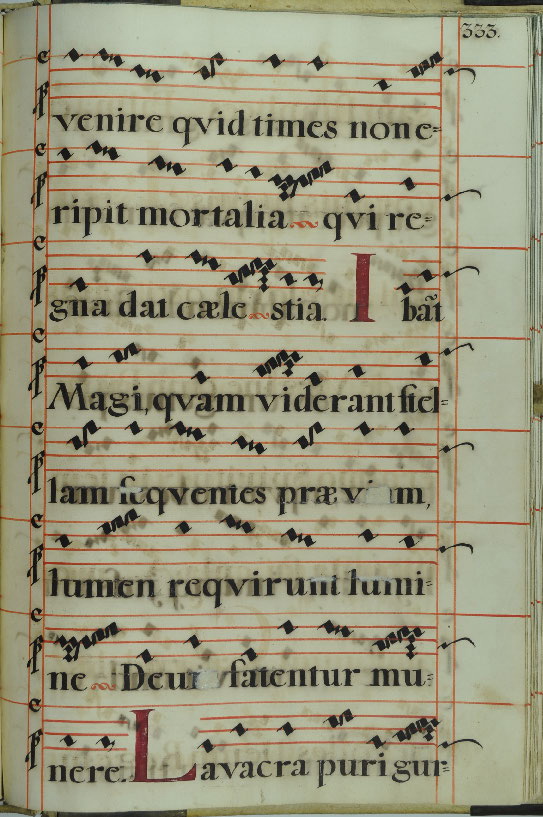 333.
venire qvid times non e=
ripit mortalia qvi re=
gna dat cæle stia. I bãt
Magi, qvam viderant stel=
lam seqventes præ vi am,
lumen reqvirunt lumi=
ne Deum fatentur mu=
nere. Lavacra puri gur=